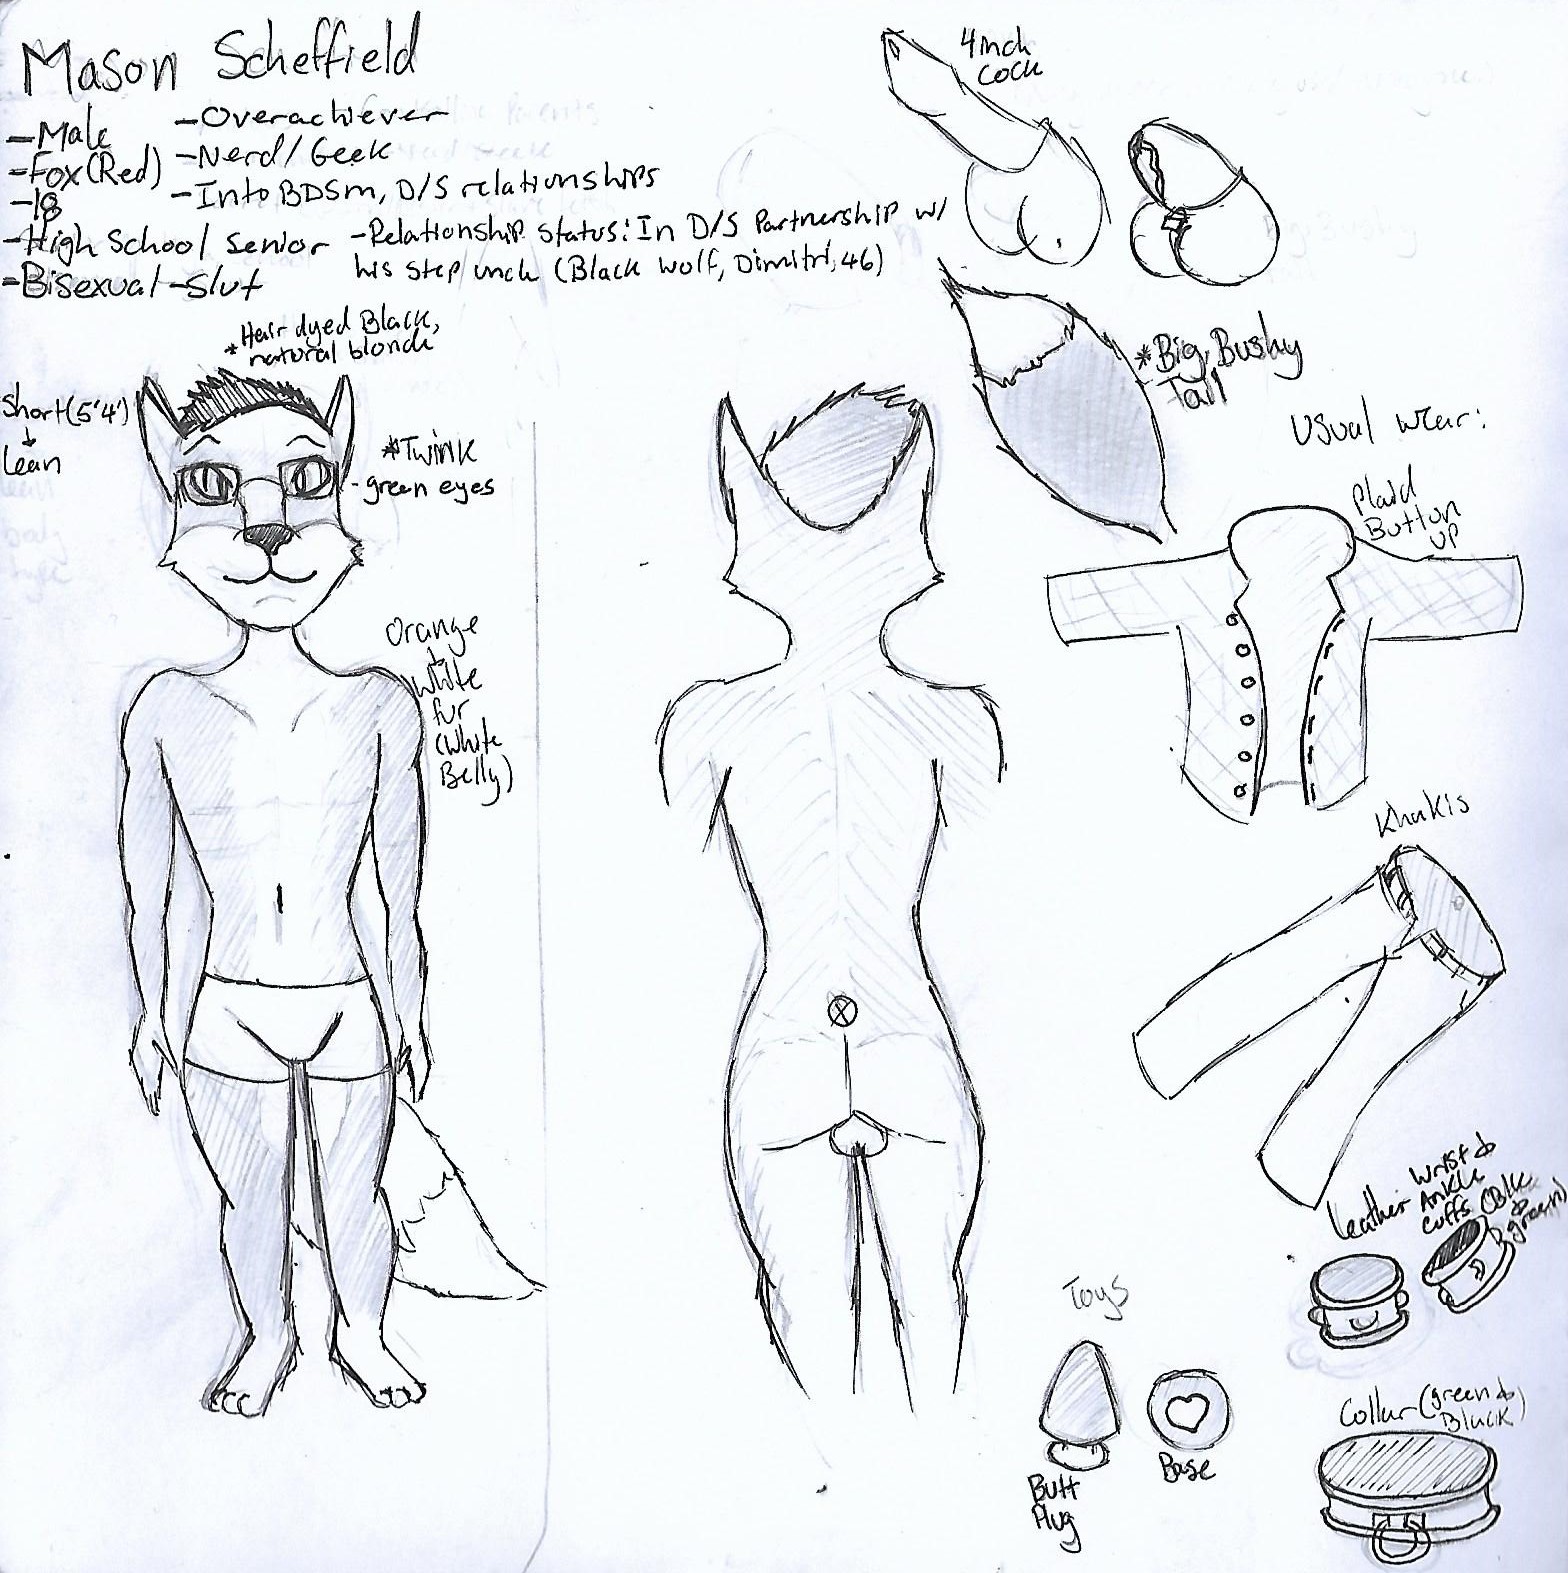 Mason Scheffield
-Male
-Fox(Red)
-18
-High School senior
-Bisexual -Slut
-Overachiever
-Nerd/Geek
-Into BDSM, D/S relationships
-Relationship status: In D/S Partnership w/
his step uncle (Black Wolf, Dimitri, 46)
*Hair dyed Black,
natural blonde
Short (5'4")
Lean
*Twink
-green eyes
Orange
White
fur
(White
Belly)
4 inch
cock
*Big, Bushy
Tail
Usual wear:
Plaid
Button
up
Khakis
Leather Wrist &
Ankle
cuffs (Blk
& green)
Toys
Butt
Plug
Base
Collar (green &
Black)